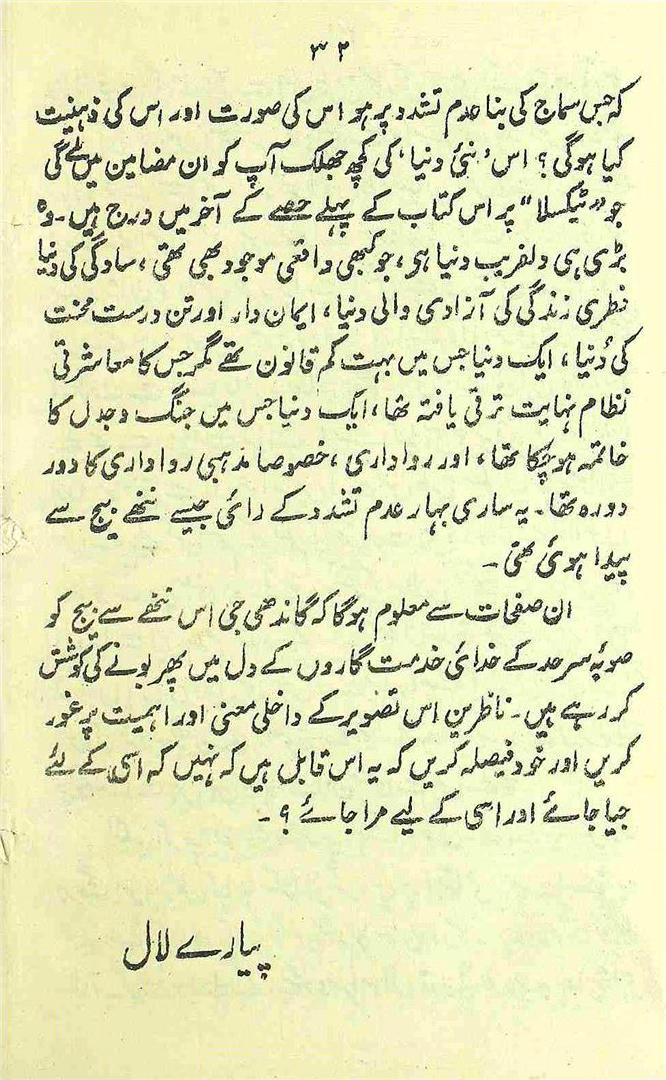 ۳۲
کہ جس سماج کی بنا عدم تشدد پر ہو اس کی صورت اور اس کی ذہنیت
کیا ہوگی؟ اس ’نئی دنیا‘ کی کچھ جھلک آپ کو ان مضامین میں ملے گی
جو ”ٹیکسلا“ پر اس کتاب کے پہلے حصے کے آخر میں درج ہیں۔ وہ
بڑی ہی دلفریب دنیا ہی، جو کبھی واقعی موجود بھی تھی، سادگی کی دنیا
فطری زندگی کی آزادی والی دنیا، ایمان دار اور تن درست محنت
کی دُنیا، ایک دنیا جس میں بہت کم قانون تھے مگر جس کا معاشرتی
نظام نہایت ترقی یافتہ تھا، ایک دنیا جس میں جنگ وجدل کا
خاتمہ ہو چُکا تھا، اور رواداری، خصوصاً مذہبی رواداری کا دور
دورہ تھا۔ یہ ساری بہار عدم تشدد کے رائی جیسے ننھے بیج سے
پیدا ہوئی تھی۔
ان صفحات سے معلوم ہوگا کہ گاندھی جی اس ننھے سے بیج کو
صوبہ سرحد کے خدائی خدمت گاروں کے دل میں پھر بونے کی کوشش
کر رہے ہیں۔ ناظرین اس تصویر کے داخلی معنی اور اہمیت پر غور
کریں اور خود فیصلہ کریں کہ یہ اس قابل ہیں کہ نہیں کہ اسی کے لئے
جیا جائے اور اسی کے لیے مرا جائے؟۔
پیارے لال